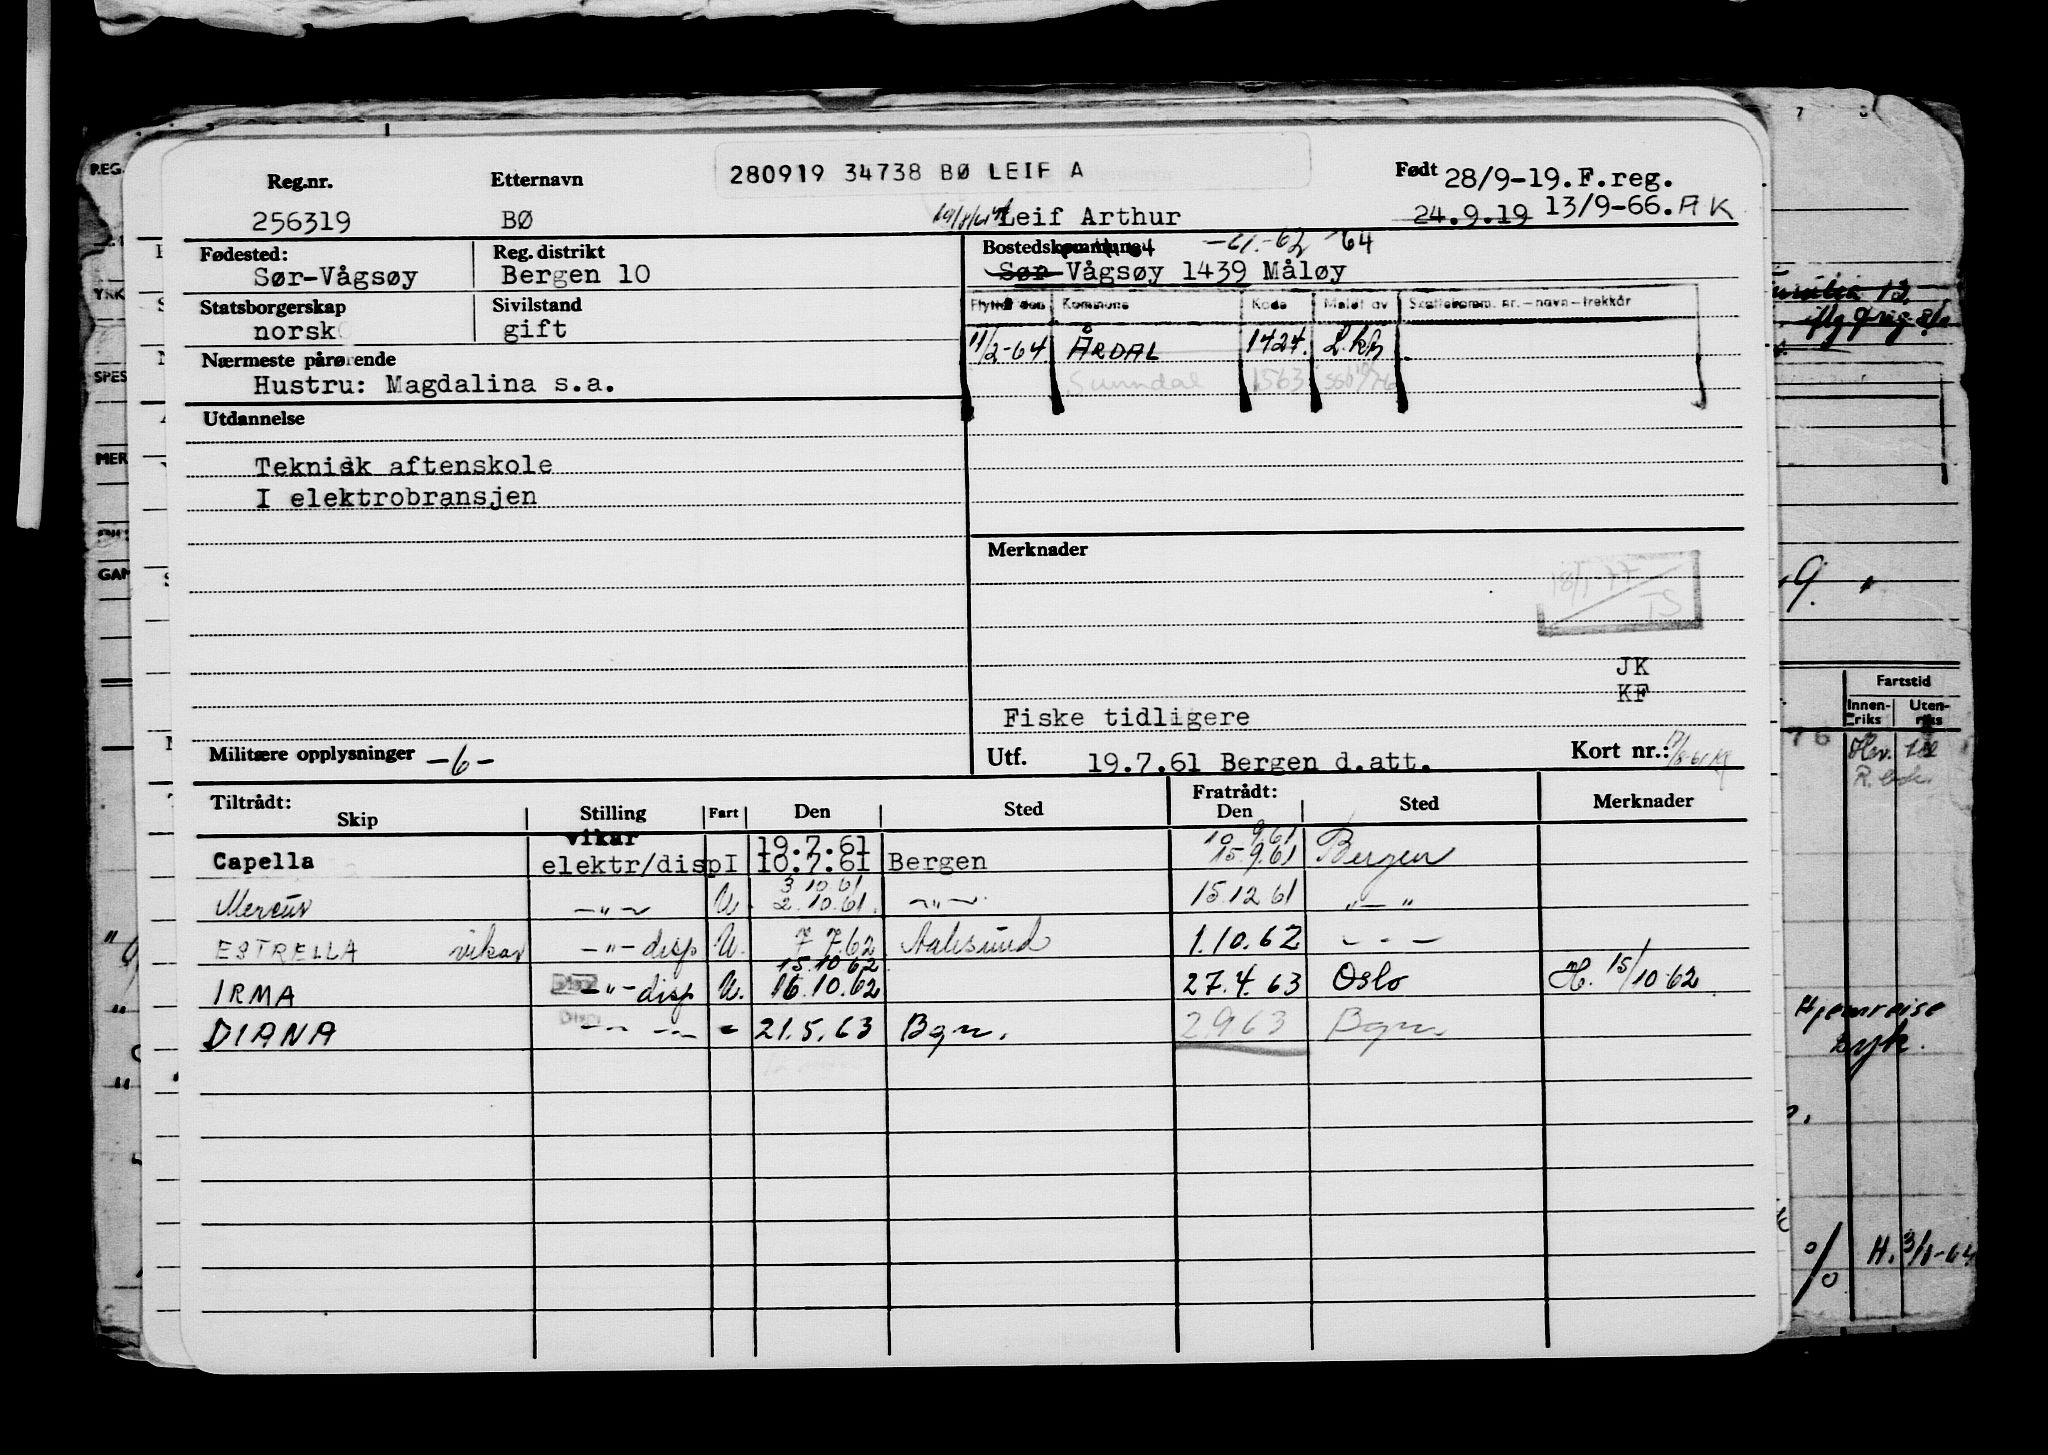 280919 34738 BØ LEIF A
Reg.nr. Etternavn Født 28/9-19.F.reg.
256319 BØ Leif Arthur 24.9.19 13/9-66. AK
Fødested: Reg. distrikt Bostedskommune -61.-62 -64
Sør-Vågsøy Bergen 10 Sør Vågsøy 1439 Måløy
Statsborgerskap Sivilstand Flyttet den Kommune Kode Meldt av Skattekomm. nr.-navn-trekkår
norsk gift 11/2-64 ÅRDAL 1424.
Nærmeste pårørende Sunndal 1563
Hustru: Magdalina s.a.
Utdannelse
Teknisk aftenskole
I elektrobransjen
Merknader
18/1-77
TS
JK
KF
Fiske tidligere
Militære opplysninger -6- Utf. 19.7.61 Bergen d.att. Kort nr.:
Tiltrådt: Fratrådt:
Skip Stilling Fart Den Sted Den Sted Merknader
vikar 19.7.61 10.9.61
Capella elektr/disp I 10.7.61 Bergen 15.9.61 Bergen
3.10.61
Mercur -"- U. 2.10.61. -"- 15.12.61 -"-
ESTRELLA vikar -"- disp U. 7.7.62 Aalesund 1.10.62 - - -
15.10.62
IRMA -"- disp U. 16.10.62 27.4.63 Oslo H. 15/10 62
DIANA -"- -"- - 21.5.63 Bgn. 2.9.63 Bgn.
REG.
YRK
SPES
MER
GAM
7 8
Fartstid
Innen-riks Uten-riks
76
Hjemreise
H. 3/1-64